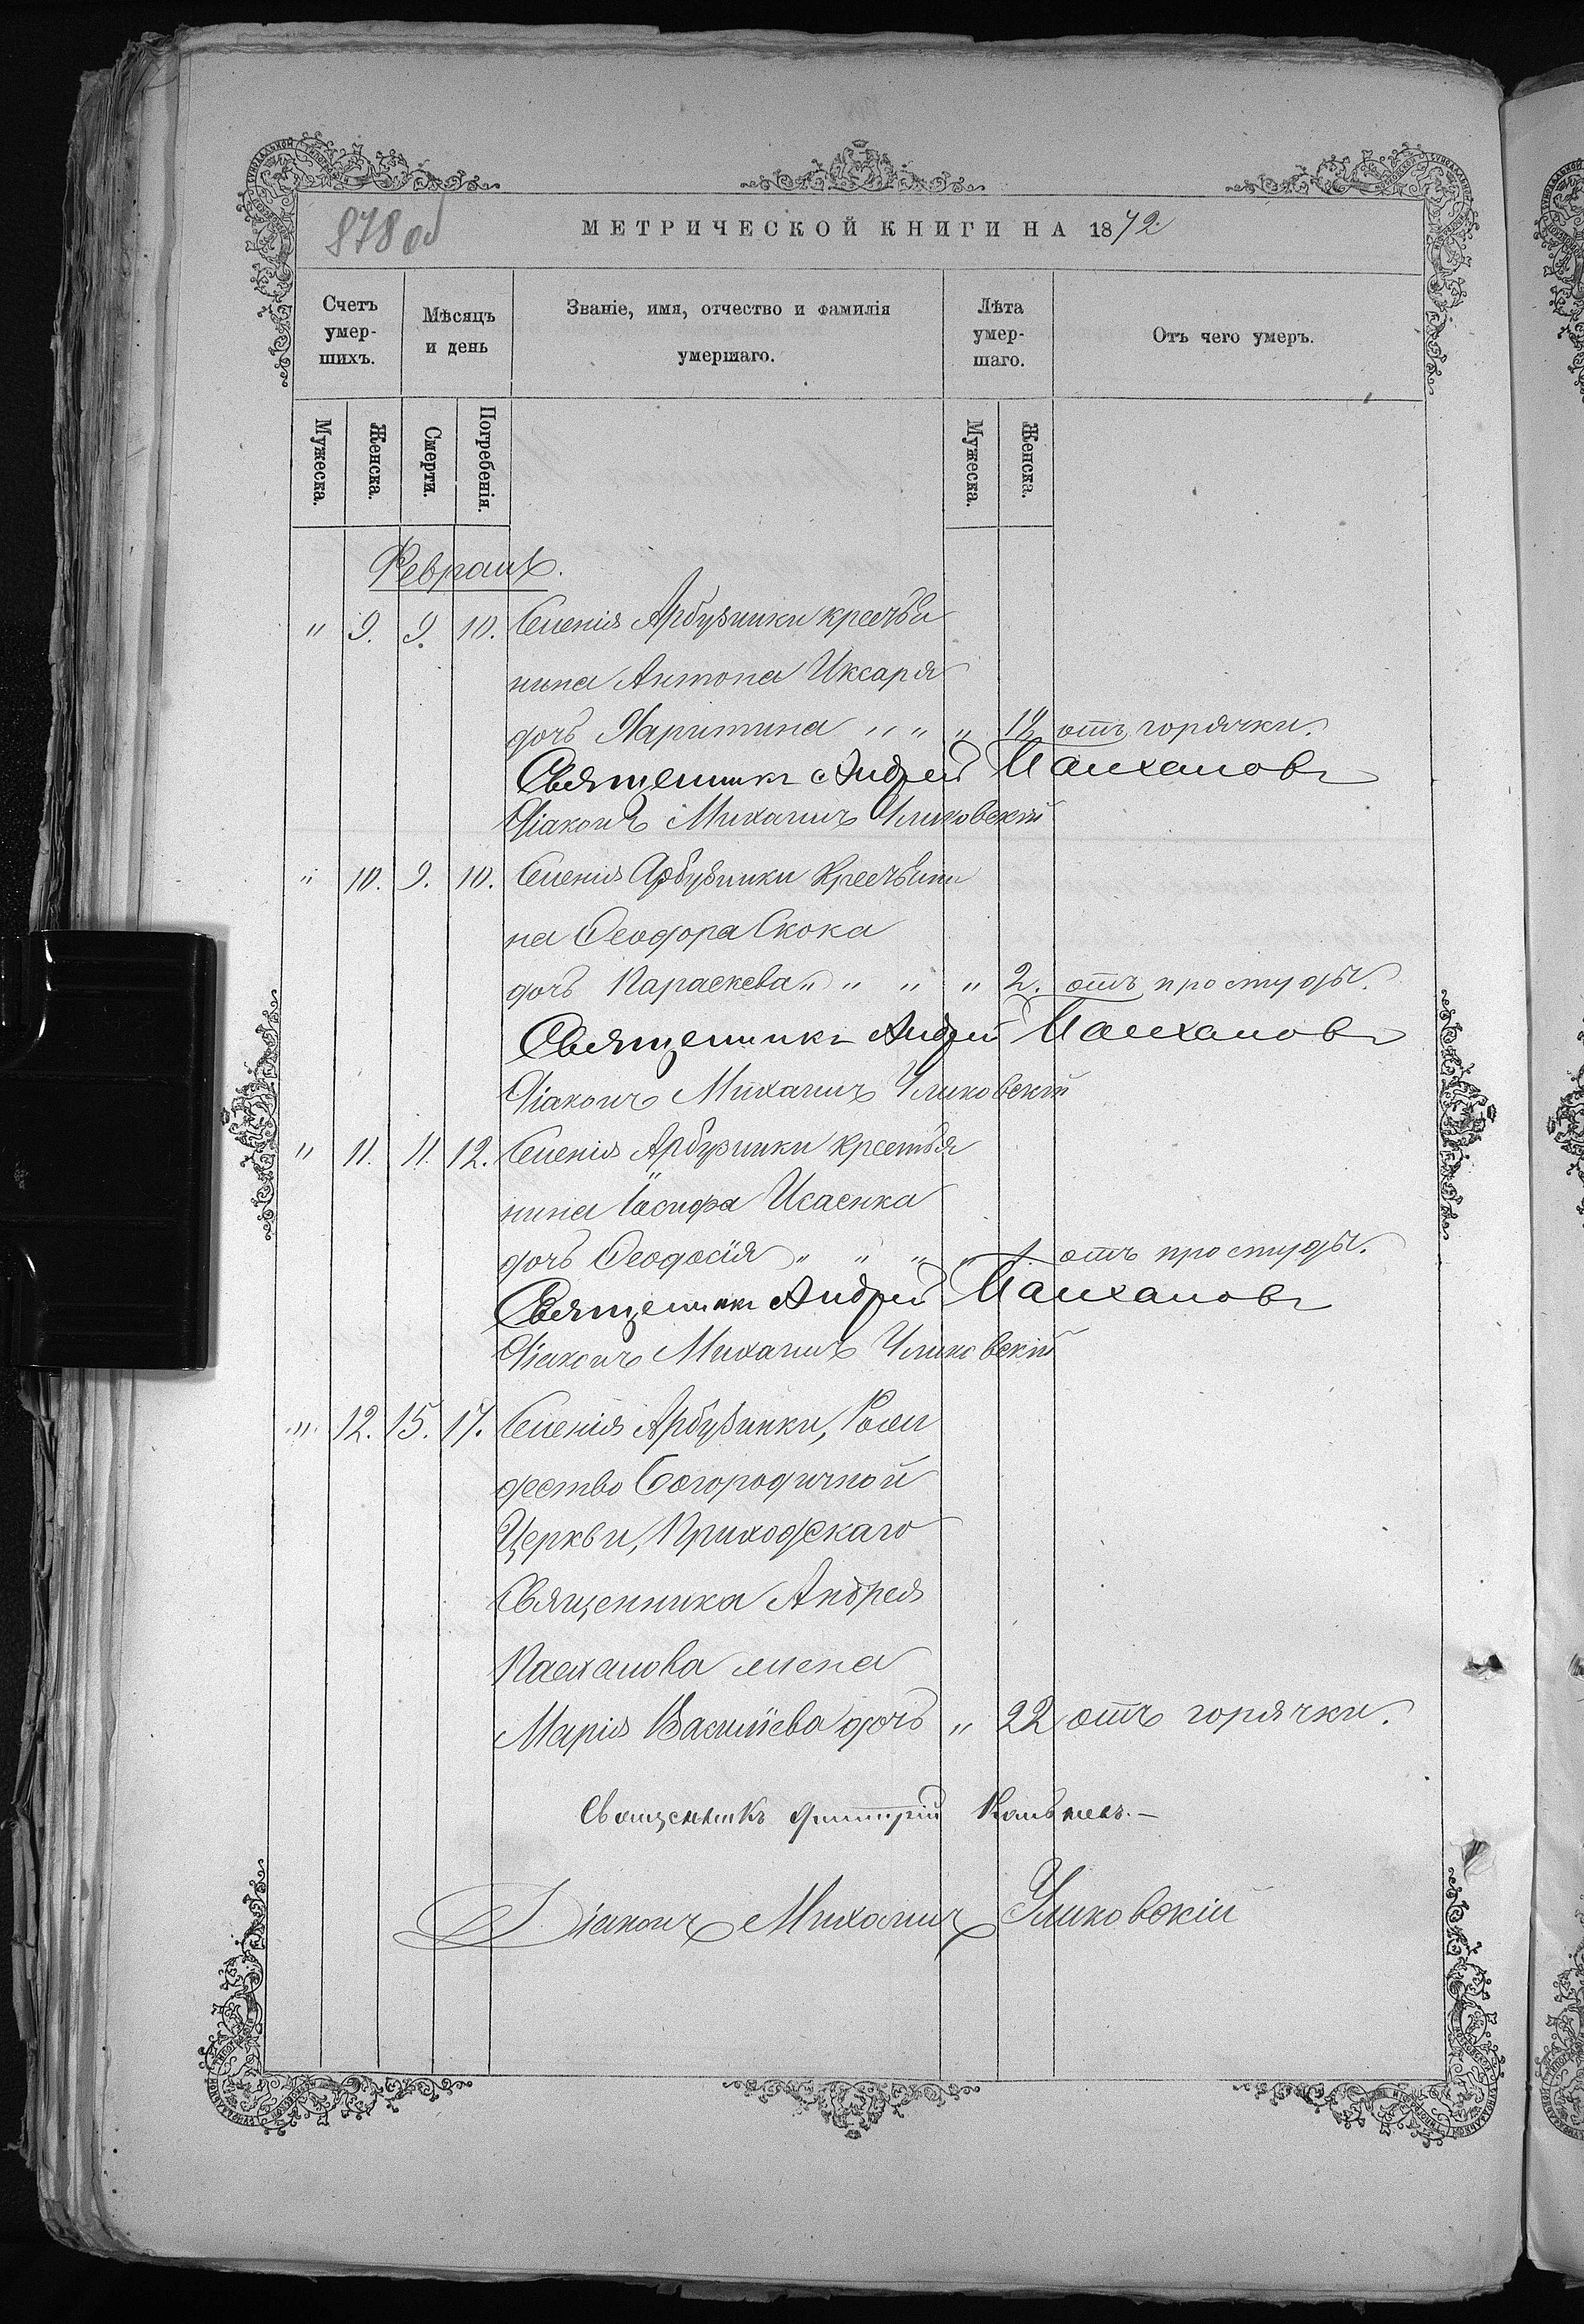 878 об
МЕТРИЧЕСКОЙ КНИГИ НА 1872.
Счетъ умер-шихъ.
Мѣсяцъ и день
Званіе, имя, отчество и фамилія умершаго.
Лѣта умер-шаго.
Отъ чего умеръ.
Мужеска. Женска. Смерти. Погребенія. Мужеска. Женска.
Февраль.
" 9. 9. 10. Селенія Арбузинки крестья
нина Антона
дочь Харитина " " " 12 отъ горячки.
Священникъ Андрей
Діаконъ Михаилъ
" 10. 9. 10. Селенія Арбузинки Крестьяни
на Ѳеодора Скока
дочь Параскева " " " " 2. отъ простуды.
Священникъ Андрей
Діаконъ Михаилъ
" 11. 11. 12. Селенія Арбузинки крестья
нина Іосифа Исаенка
дочь Ѳеодосія " " " " 1. отъ простуды.
Священникъ Андрей
Діаконъ Михаилъ
" 12. 15. 17. Селенія Арбузинки, Рож
дество Богородичной
Церкви, Приходскаго
Священника Андрея
жена
Марія Василіева дочь " 22 отъ горячки.
Священникъ Димитрій
Діаконъ Михаилъ